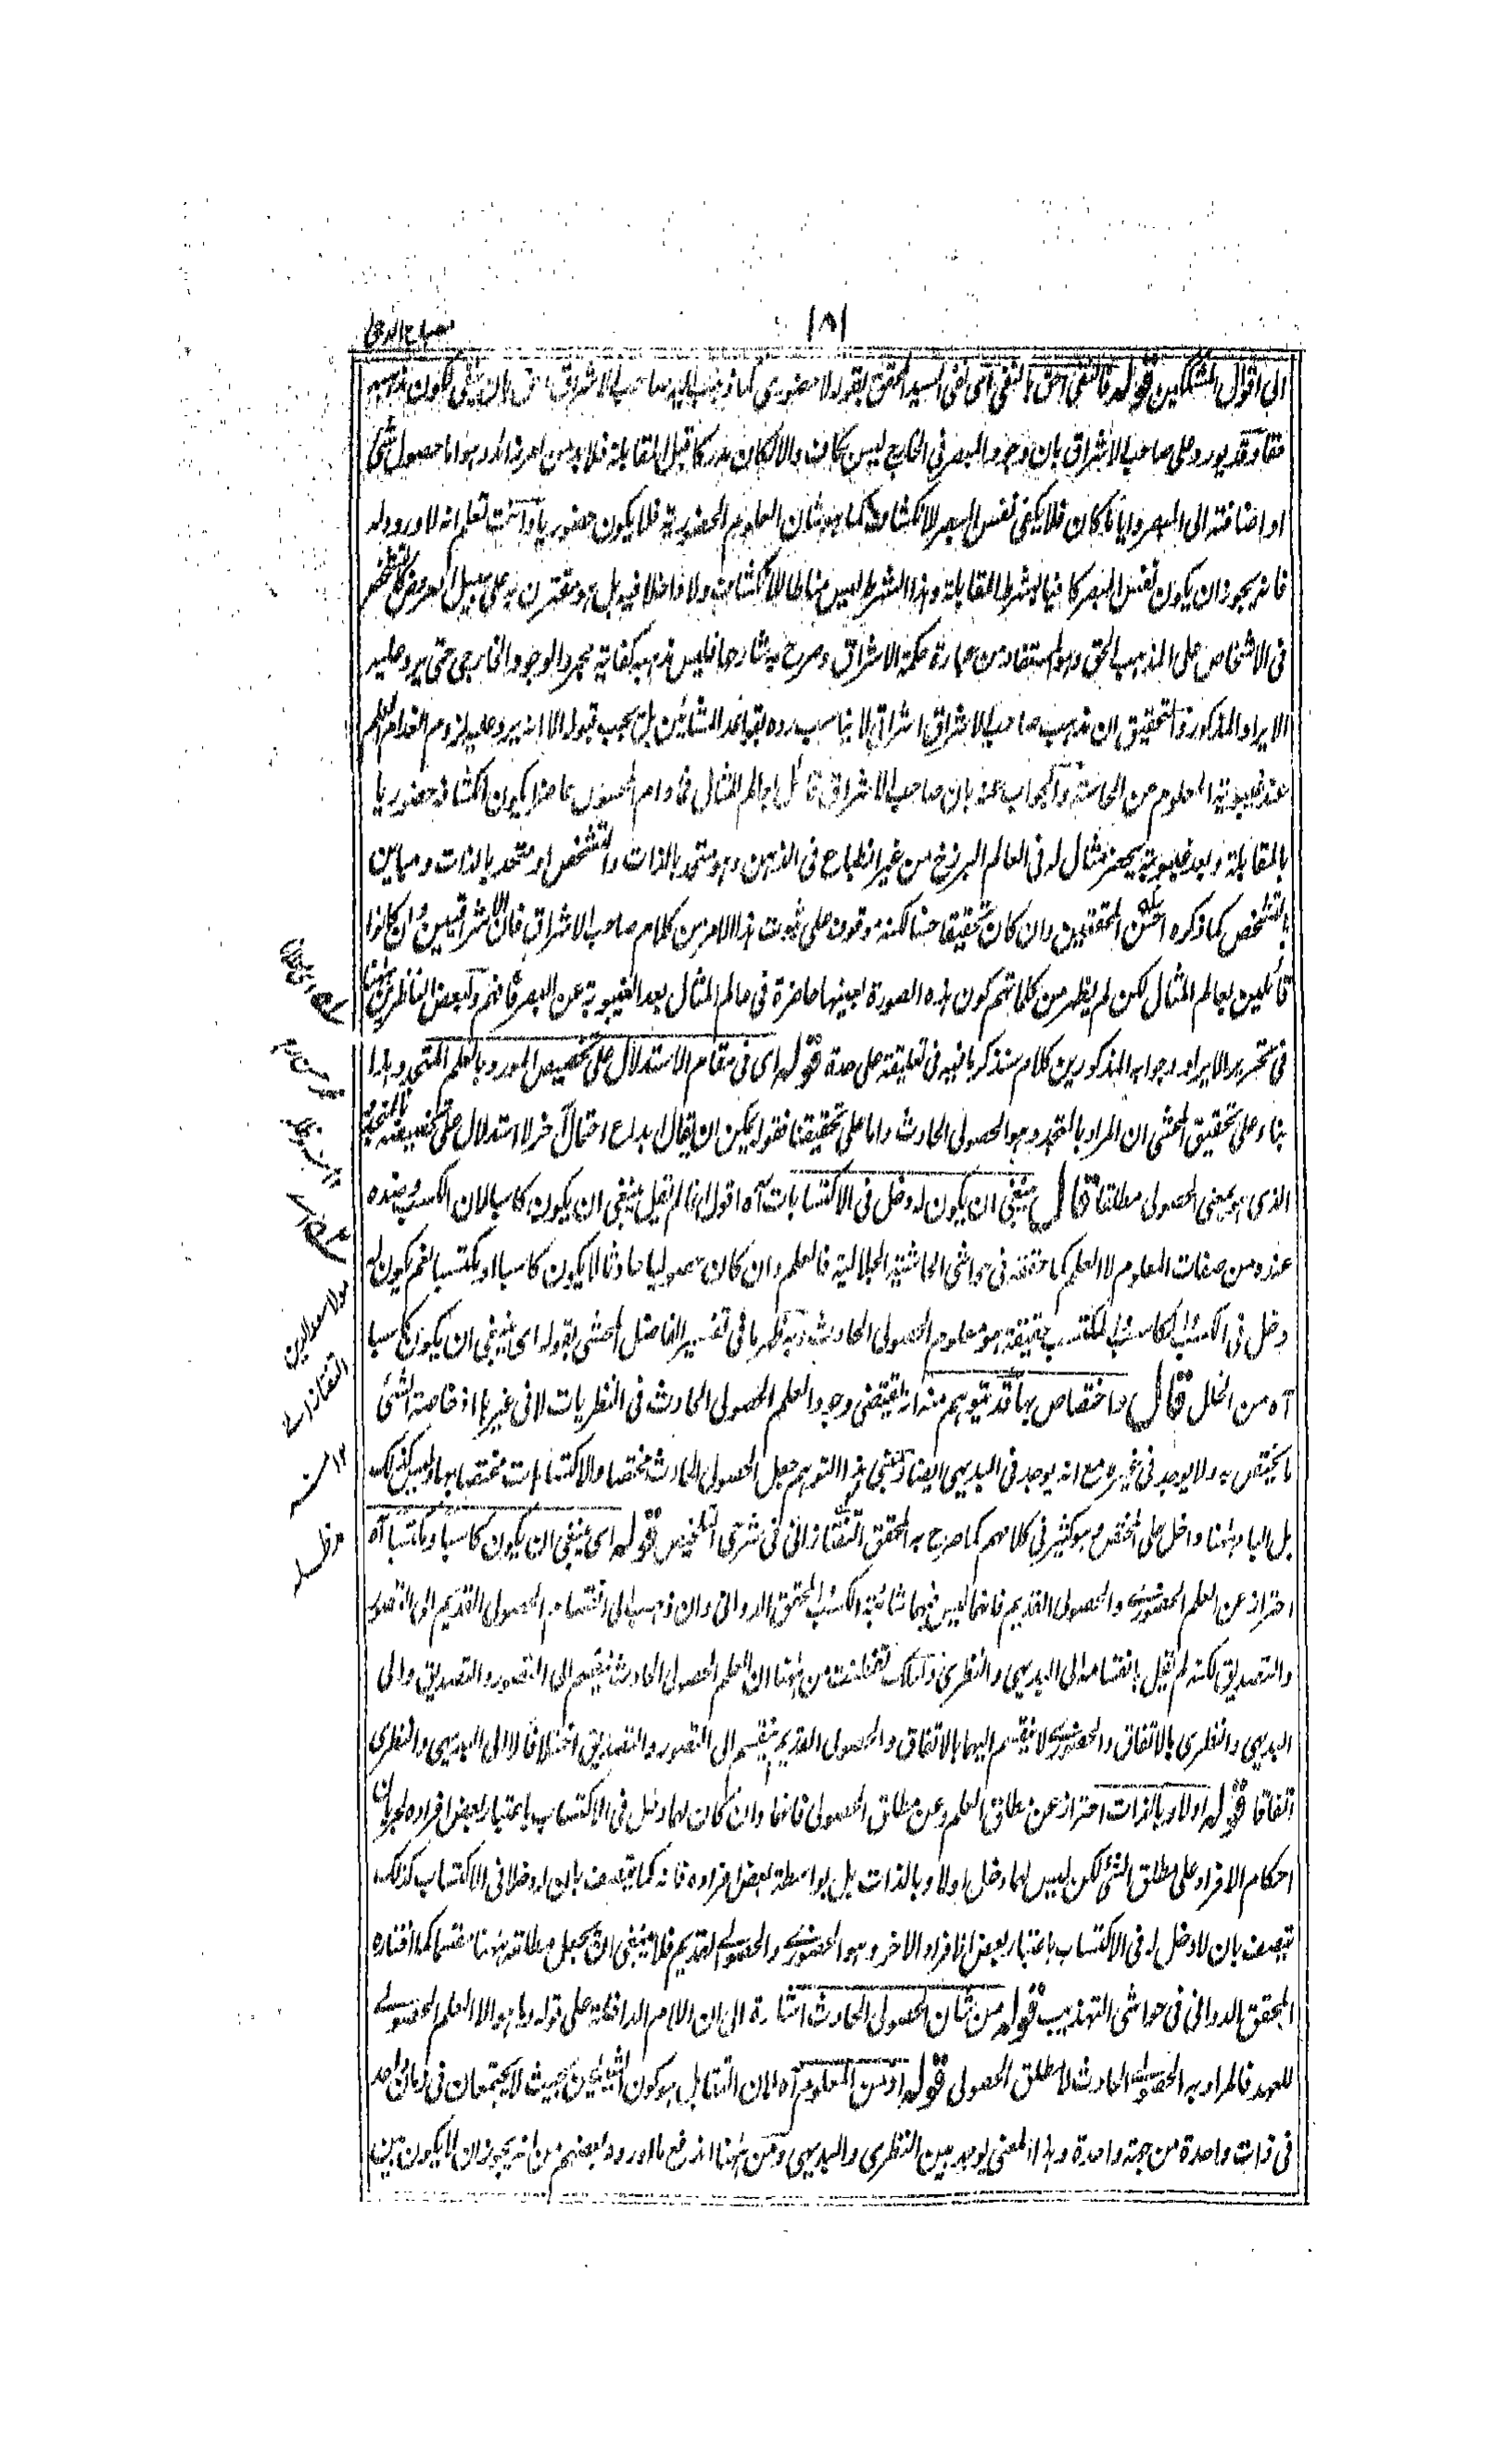 ١٨١
مصباح الدجى
الى اقوال المشككين قوله فالنفى احق بالنفى اى نفى السيد المحقق بقوله لا حضورى كما ذهب اليه صاحب الاشراق احق بان ينفى لكون مذهبه
حقا وقد يورد على صاحب الاشراق بان وجود المبصر فى الخارج ليس بكاف والا لكان مدركا قبل المقابلة فلا بد من امر زائد وهو اما حصول شئ
او اضافته الى المبصر وايا ما كان فلا يكفى نفس المبصر للانكشاف كما هو شان العلوم الحضورية فلا يكون حضوريا وانت تعلم انه لا ورود له
فانه يجوز ان يكون نفس المبصر كافيا بشرط المقابلة وهذا الشرط ليس مناطا للانكشاف ولا داخلا فيه بل هو مقترن به على سبيل العروض كالتشخص
فى الاشخاص على المذهب الحق وهو المستفاد من عبارة حكمة الاشراق وصرح به شارحها فليس مذهبه كفاية مجرد الوجود الخارجى حتى يرد عليه
الايراد المذكور والتحقيق ان مذهب صاحب الاشراق اشراقى لا يناسب رده بقواعد المشائين بل يجب قبوله الا انه يرد عليه لزوم انعدام العلم
عند غيبوبة المعلوم من الحاسة والجواب عنه بان صاحب الاشراق قائل بعالم المثال فما دام المحسوس حاضرا يكون انكشافه حضوريا
بالمقابلة وبعد غيبوبته يحضر مثال له فى العالم البرزخ من غير انطباع فى الذهن وهو متحد بالذات والتشخص او متحد بالذات ومباين
بالتشخص كما ذكره احسن المحققين وان كان تحقيقا حسنا لكنه موقوف على ثبوت هذا الامر من كلام صاحب الاشراق فان الاشراقيين وان كانوا
قائلين بعالم المثال لكن لم يظهر من كلماتهم كون هذه الصورة بعينها حاضرة فى عالم المثال بعد الغيبوبة عن البصر فافهم ولبعض الناظرين ههنا
فى تحرير الايراد وجوابه المذكورين كلام سنذكره بما فيه فى تعليقته على حدة قوله اى فى مقام الاستدلال على تخصيص المورد بالعلم المتجدد هذا
بناء على تحقيق المحشى ان المراد بالمتجدد هو الحصولى الحادث واما على تحقيقنا فنقول يمكن ان يقال ابداء احتمال آخر لاستدلال على تخصيصه بالمتجدد
الذى هو بمعنى الحصولى مطلقا قال ينبغى ان يكون له دخل فى الاكتسابات آه اقول انما لم يقل ينبغى ان يكون كاسبا لان الكسب وضده
عنده من صفات المعلوم لا العلم كما حققه فى حواشى الحاشية الجلالية فالعلم وان كان حصوليا حادثا لا يكون كاسبا او مكتسبا نعم يكون له
دخل فى الكسب والكاسب والمكتسب حقيقة هو معلوم الحصولى الحادث وبه ظهر ما فى تفسير الفاضل المحشى بقوله اى ينبغى ان يكون كاسبا
آه من الخلل قال واختصاص بها قد يتوهم منه انه يقتضى وجود العلم الحصولى الحادث فى النظريات لا فى غيرها اذ خاصة الشئ
ما يختص به ولا يوجد فى غيره مع انه يوجد فى البديهى ايضا ومنشئ هذا التوهم جعل الحصولى الحادث مختصا والاكتسابات مختصا بها وليس كذلك
بل الباء ههنا داخل على المختص وهو كثير فى كلامهم كما صرح به المحقق التفتازانى فى شرحى التلخيص قوله اى ينبغى ان يكون كاسبا ومكتسبا آه
احتراز عن العلم الحضورى والحصولى القديم فانهما ليس فيهما شائبة الكسب والمحقق الدوانى وان ذهب الى انقسام الحصولى القديم الى التصور
والتصديق لكنه لم يقل بانقسامه الى البديهى والنظرى ولعلك تفطنت من ههنا ان العلم الحصولى الحادث ينقسم الى التصور والتصديق والى
البديهى والنظرى بالاتفاق والحضورى لا ينقسم اليهما بالاتفاق والحصولى القديم ينقسم الى التصور والتصديق اختلافا لا الى البديهى والنظرى
اتفاقا قوله اولا وبالذات احتراز عن مطلق العلم وعن مطلق الحصولى فانهما وان كان لهما دخل فى الاكتساب باعتبار بعض افراده لجريان
احكام الافراد على مطلق الشئ لكن ليس لهما دخل اولا وبالذات بل بواسطة بعض افراده فانه كما يتصف بان له دخلا فى الاكتساب كذلك
يتصف بان لا دخل له فى الاكتساب باعتبار بعض الافراد الاخر وهو الحضورى والحصولى القديم فلا ينبغى ان يجعل مطلقه ههنا مقسما كما اختاره
المحقق الدوانى فى حواشى التهذيب قوله من شان الحصولى الحادث اشارة الى ان اللام الداخلة على قوله وما هو الا العلم الحصولى
للعهد فالمراد به الحصولى الحادث لا مطلق الحصولى قوله او من المعلوم آه لان التقابل هو كون الشيئين بحيث لا يجتمعان فى زمان واحد
فى ذات واحدة من جهة واحدة وهذا المعنى يوجد بين النظرى والبديهى ومن ههنا اندفع ما اورده بعضهم من انه يجوز ان لا يكون بين
مولانا سعد الدين
التفتازانى
١٢ منه
مد ظله